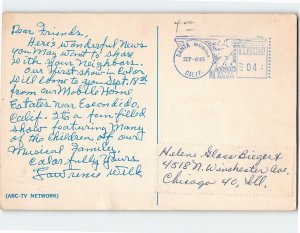 Dear Friends,
Here's wonderful News
you may want to share
with your Neighbors.
Our first show in Color
will come to you Sept. 18th
from our Mobile Home
Estates near Escondido,
Calif. It's a fun-filled
show featuring Many
of the children of our
Musical Family.
Colorfully Yours
Lawrence Welk
(ABC-TV NETWORK)
SANTA MONICA
SEP-8'65
CALIF.
04
Helene Glass Biegert
4518 N. Winchester Ave.
Chicago 40, Ill.